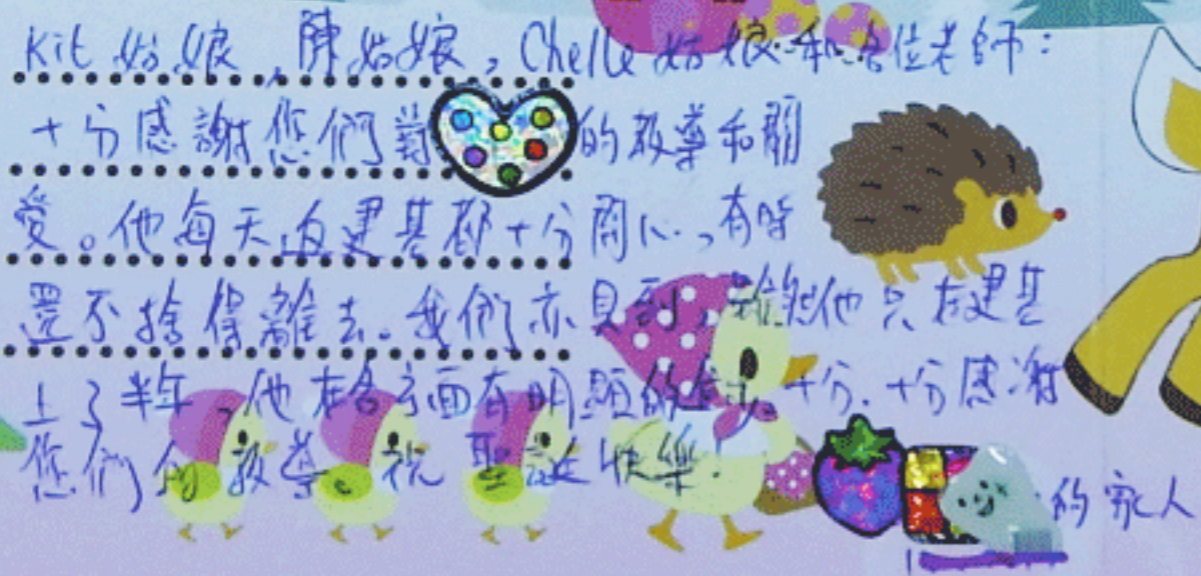 Kit姑娘,陳姑娘,Chelle姑娘和各位老師:
十分感謝您們對的教導和關
愛。他每天返建基都十分開心,有時
還不捨得離去。我們亦見到,雖然他只在建基
上了半年,他在各方面有明顯的進步。十分、十分感謝
您們的教導。祝聖誕快樂!
的家人